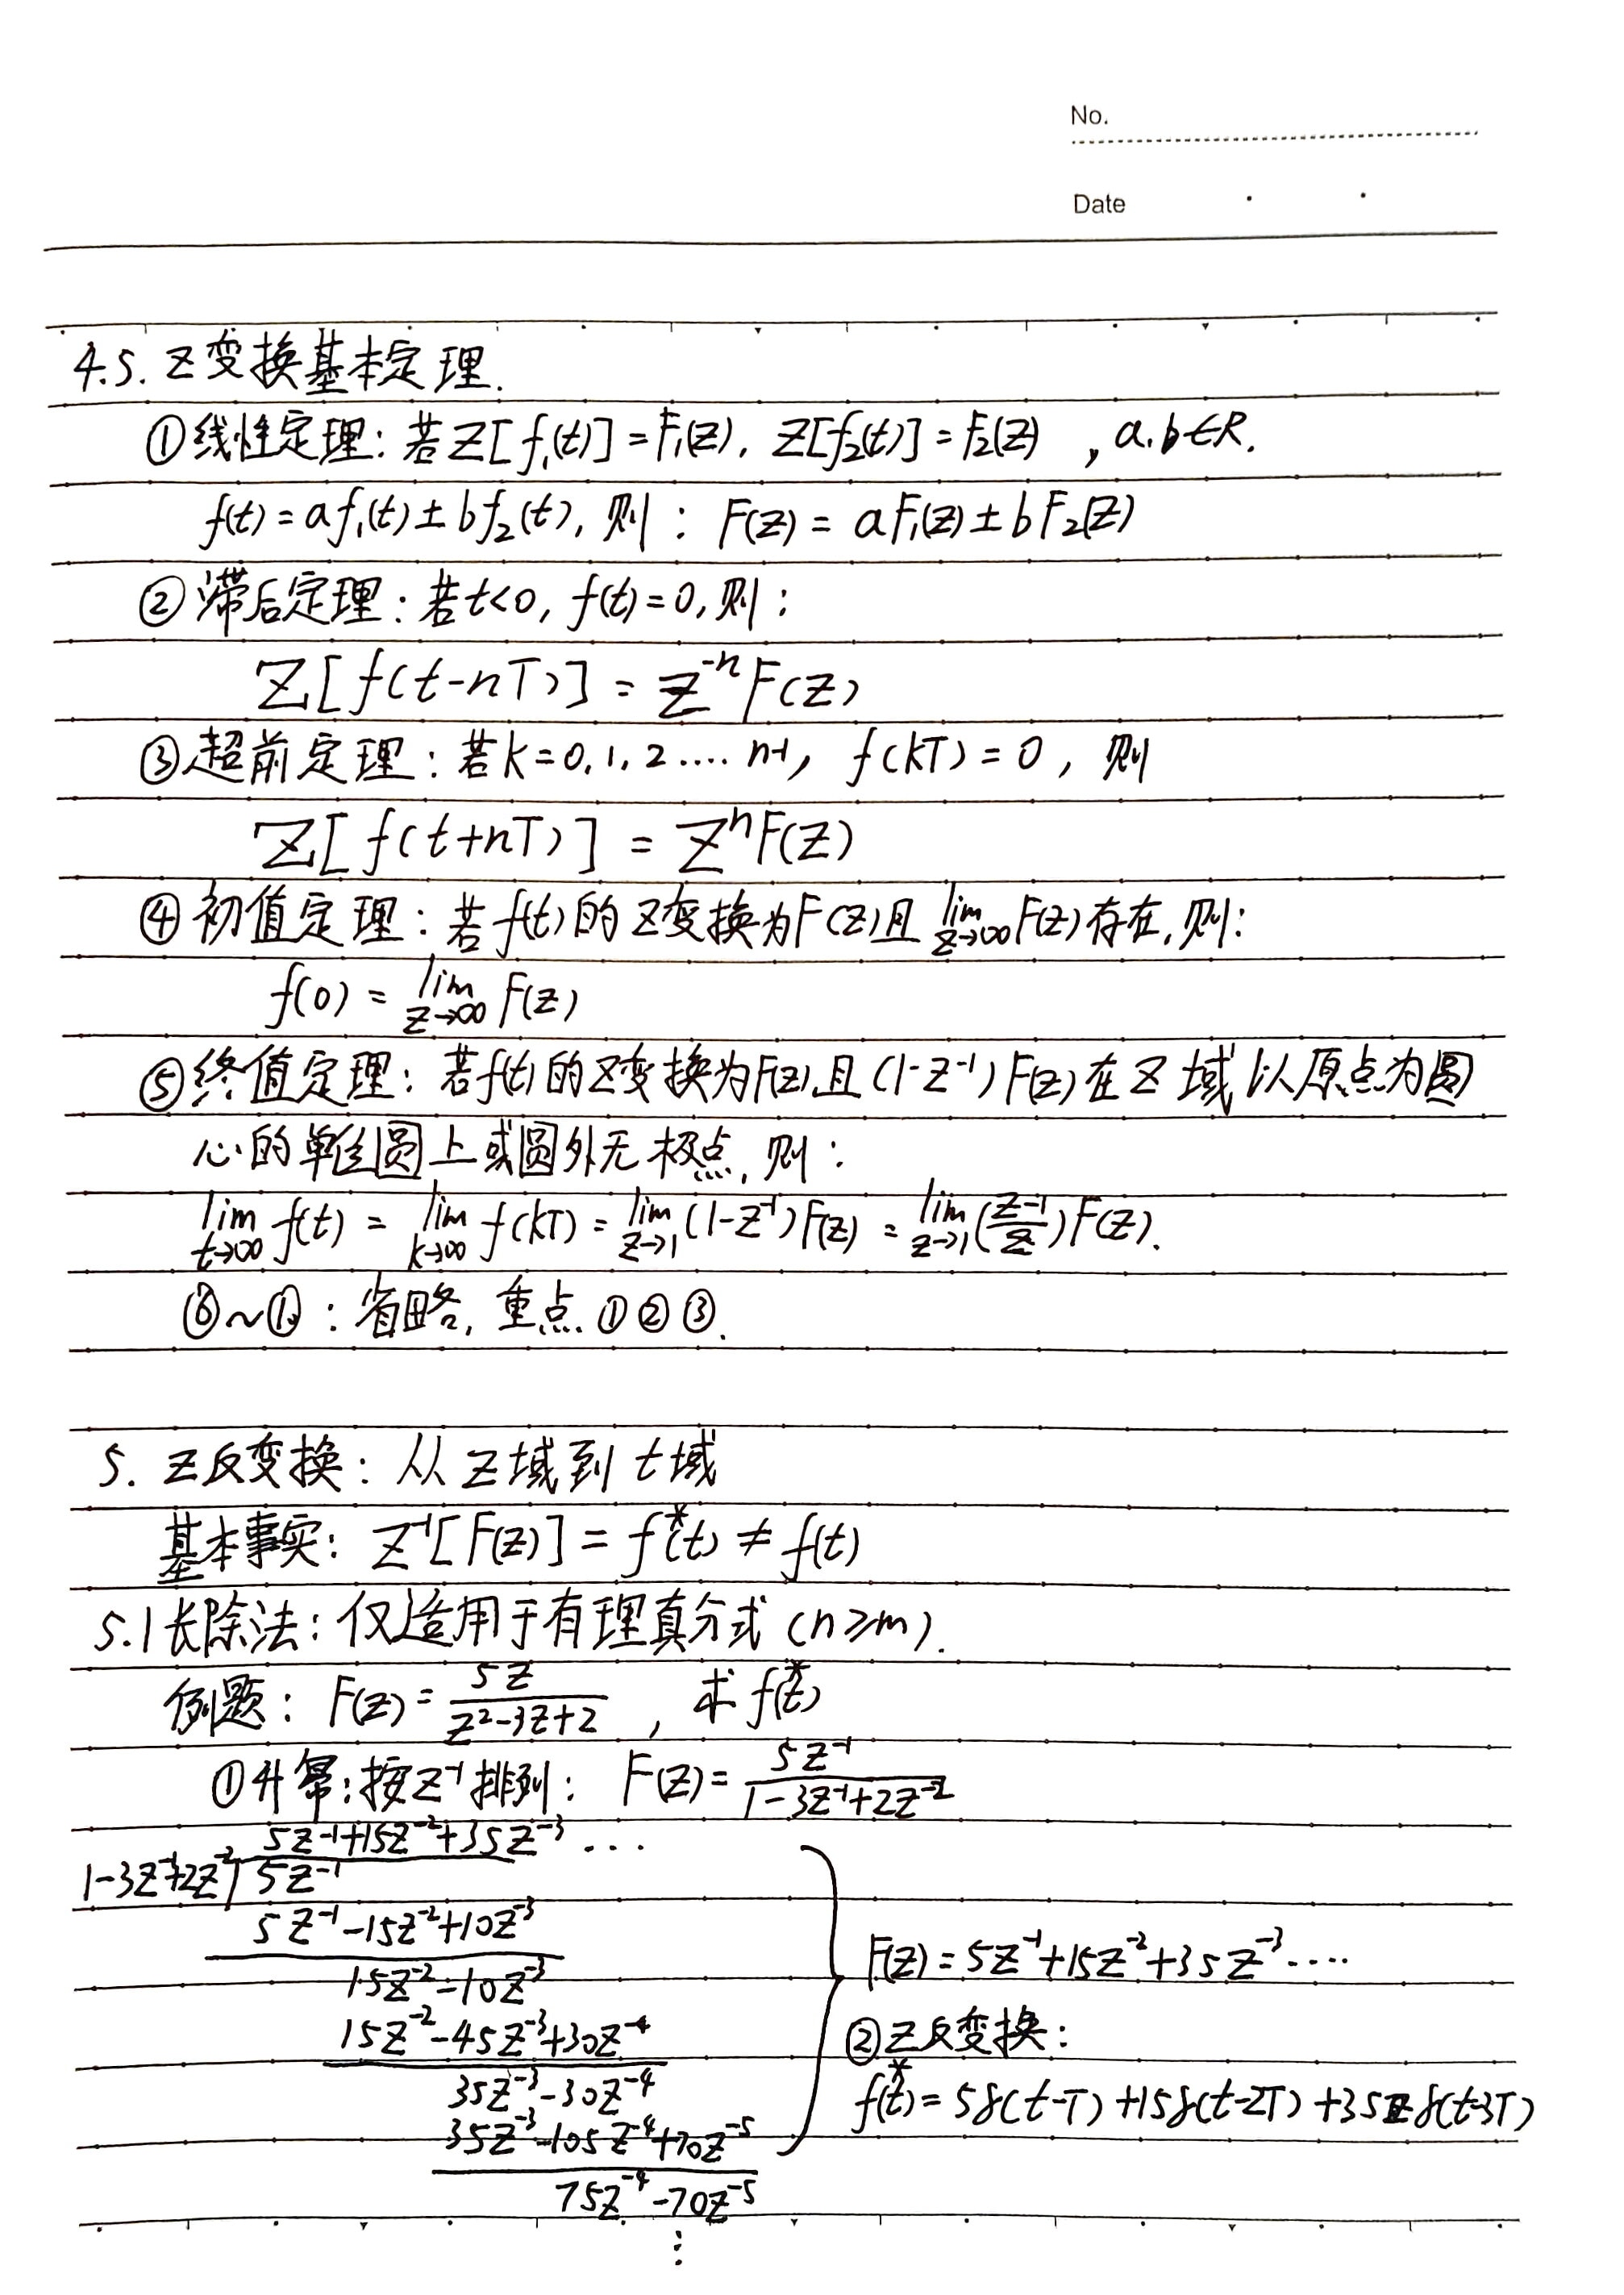 No.
Date
4.5. Z变换基本定理.
①线性定理：若Z[f₁(t)]=F₁(Z), Z[f₂(t)]=F₂(Z) , a,b∈R.
f(t)=af₁(t)±bf₂(t), 则：F(Z)=aF₁(Z)±bF₂(Z)
②滞后定理：若t<0, f(t)=0, 则：
Z[f(t-nT)]=Z⁻ⁿF(Z)
③超前定理：若k=0,1,2....n-1, f(kT)=0, 则
Z[f(t+nT)]=ZⁿF(Z)
④初值定理：若f(t)的Z变换为F(Z)且 lim z→∞ F(Z)存在,则：
f(0)= lim z→∞ F(Z)
⑤终值定理：若f(t)的Z变换为F(Z),且(1-Z⁻¹)F(Z)在Z域以原点为圆
心的单位圆上或圆外无极点,则：
lim t→∞ f(t) = lim k→∞ f(kT) = lim z→1 (1-Z⁻¹)F(Z) = lim z→1 ((Z-1)/Z)F(Z).
省略, 重点①②③.
5. Z反变换：从Z域到t域
基本事实：Z⁻¹[F(Z)]=f*(t)≠f(t)
5.1长除法：仅适用于有理真分式(n≥m).
例题：F(Z)=5Z/(Z²-3Z+2) , 求f*(t)
①升幂:按Z⁻¹排列：F(Z)=5Z⁻¹/(1-3Z⁻¹+2Z⁻²)
5Z⁻¹+15Z⁻²+35Z⁻³...
1-3Z⁻¹+2Z⁻² 5Z⁻¹
5Z⁻¹-15Z⁻²+10Z⁻³
15Z⁻²-10Z⁻³
15Z⁻²-45Z⁻³+30Z⁻⁴
35Z⁻³-30Z⁻⁴
35Z⁻³-105Z⁻⁴+70Z⁻⁵
75Z⁻⁴-70Z⁻⁵
⋮
F(Z)=5Z⁻¹+15Z⁻²+35Z⁻³....
②Z反变换：
f*(t)=5δ(t-T)+15δ(t-2T)+35δ(t-3T)